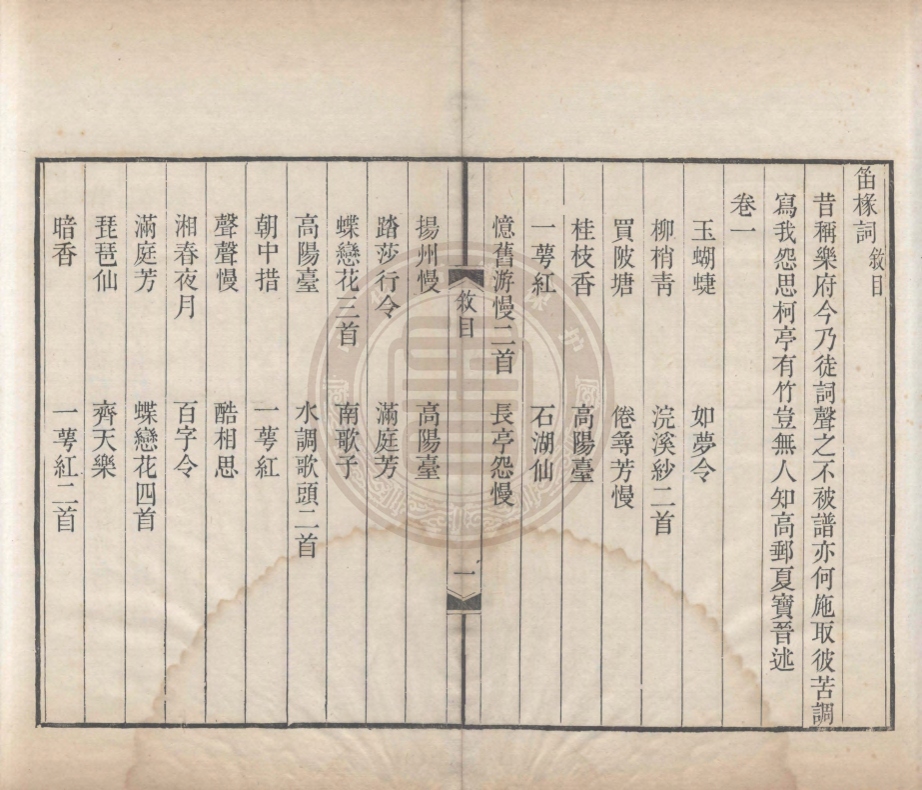 笛椽詞 敘目
昔稱樂府今乃徒詞聲之不被譜亦何施取彼苦調
寫我怨思柯亭有竹豈無人知高郵夏寶晉述
卷一
玉蝴蜨 如夢令
柳梢青 浣溪紗二首
買陂塘 倦尋芳慢
桂枝香 高陽臺
一萼紅 石湖仙
憶舊游慢二首 長亭怨慢
敘目 一
揚州慢 高陽臺
踏莎行令 滿庭芳
蝶戀花三首 南歌子
高陽臺 水調歌頭二首
朝中措 一萼紅
聲聲慢 酷相思
湘春夜月 百字令
滿庭芳 蝶戀花四首
琵琶仙 齊天樂
暗香 一萼紅二首